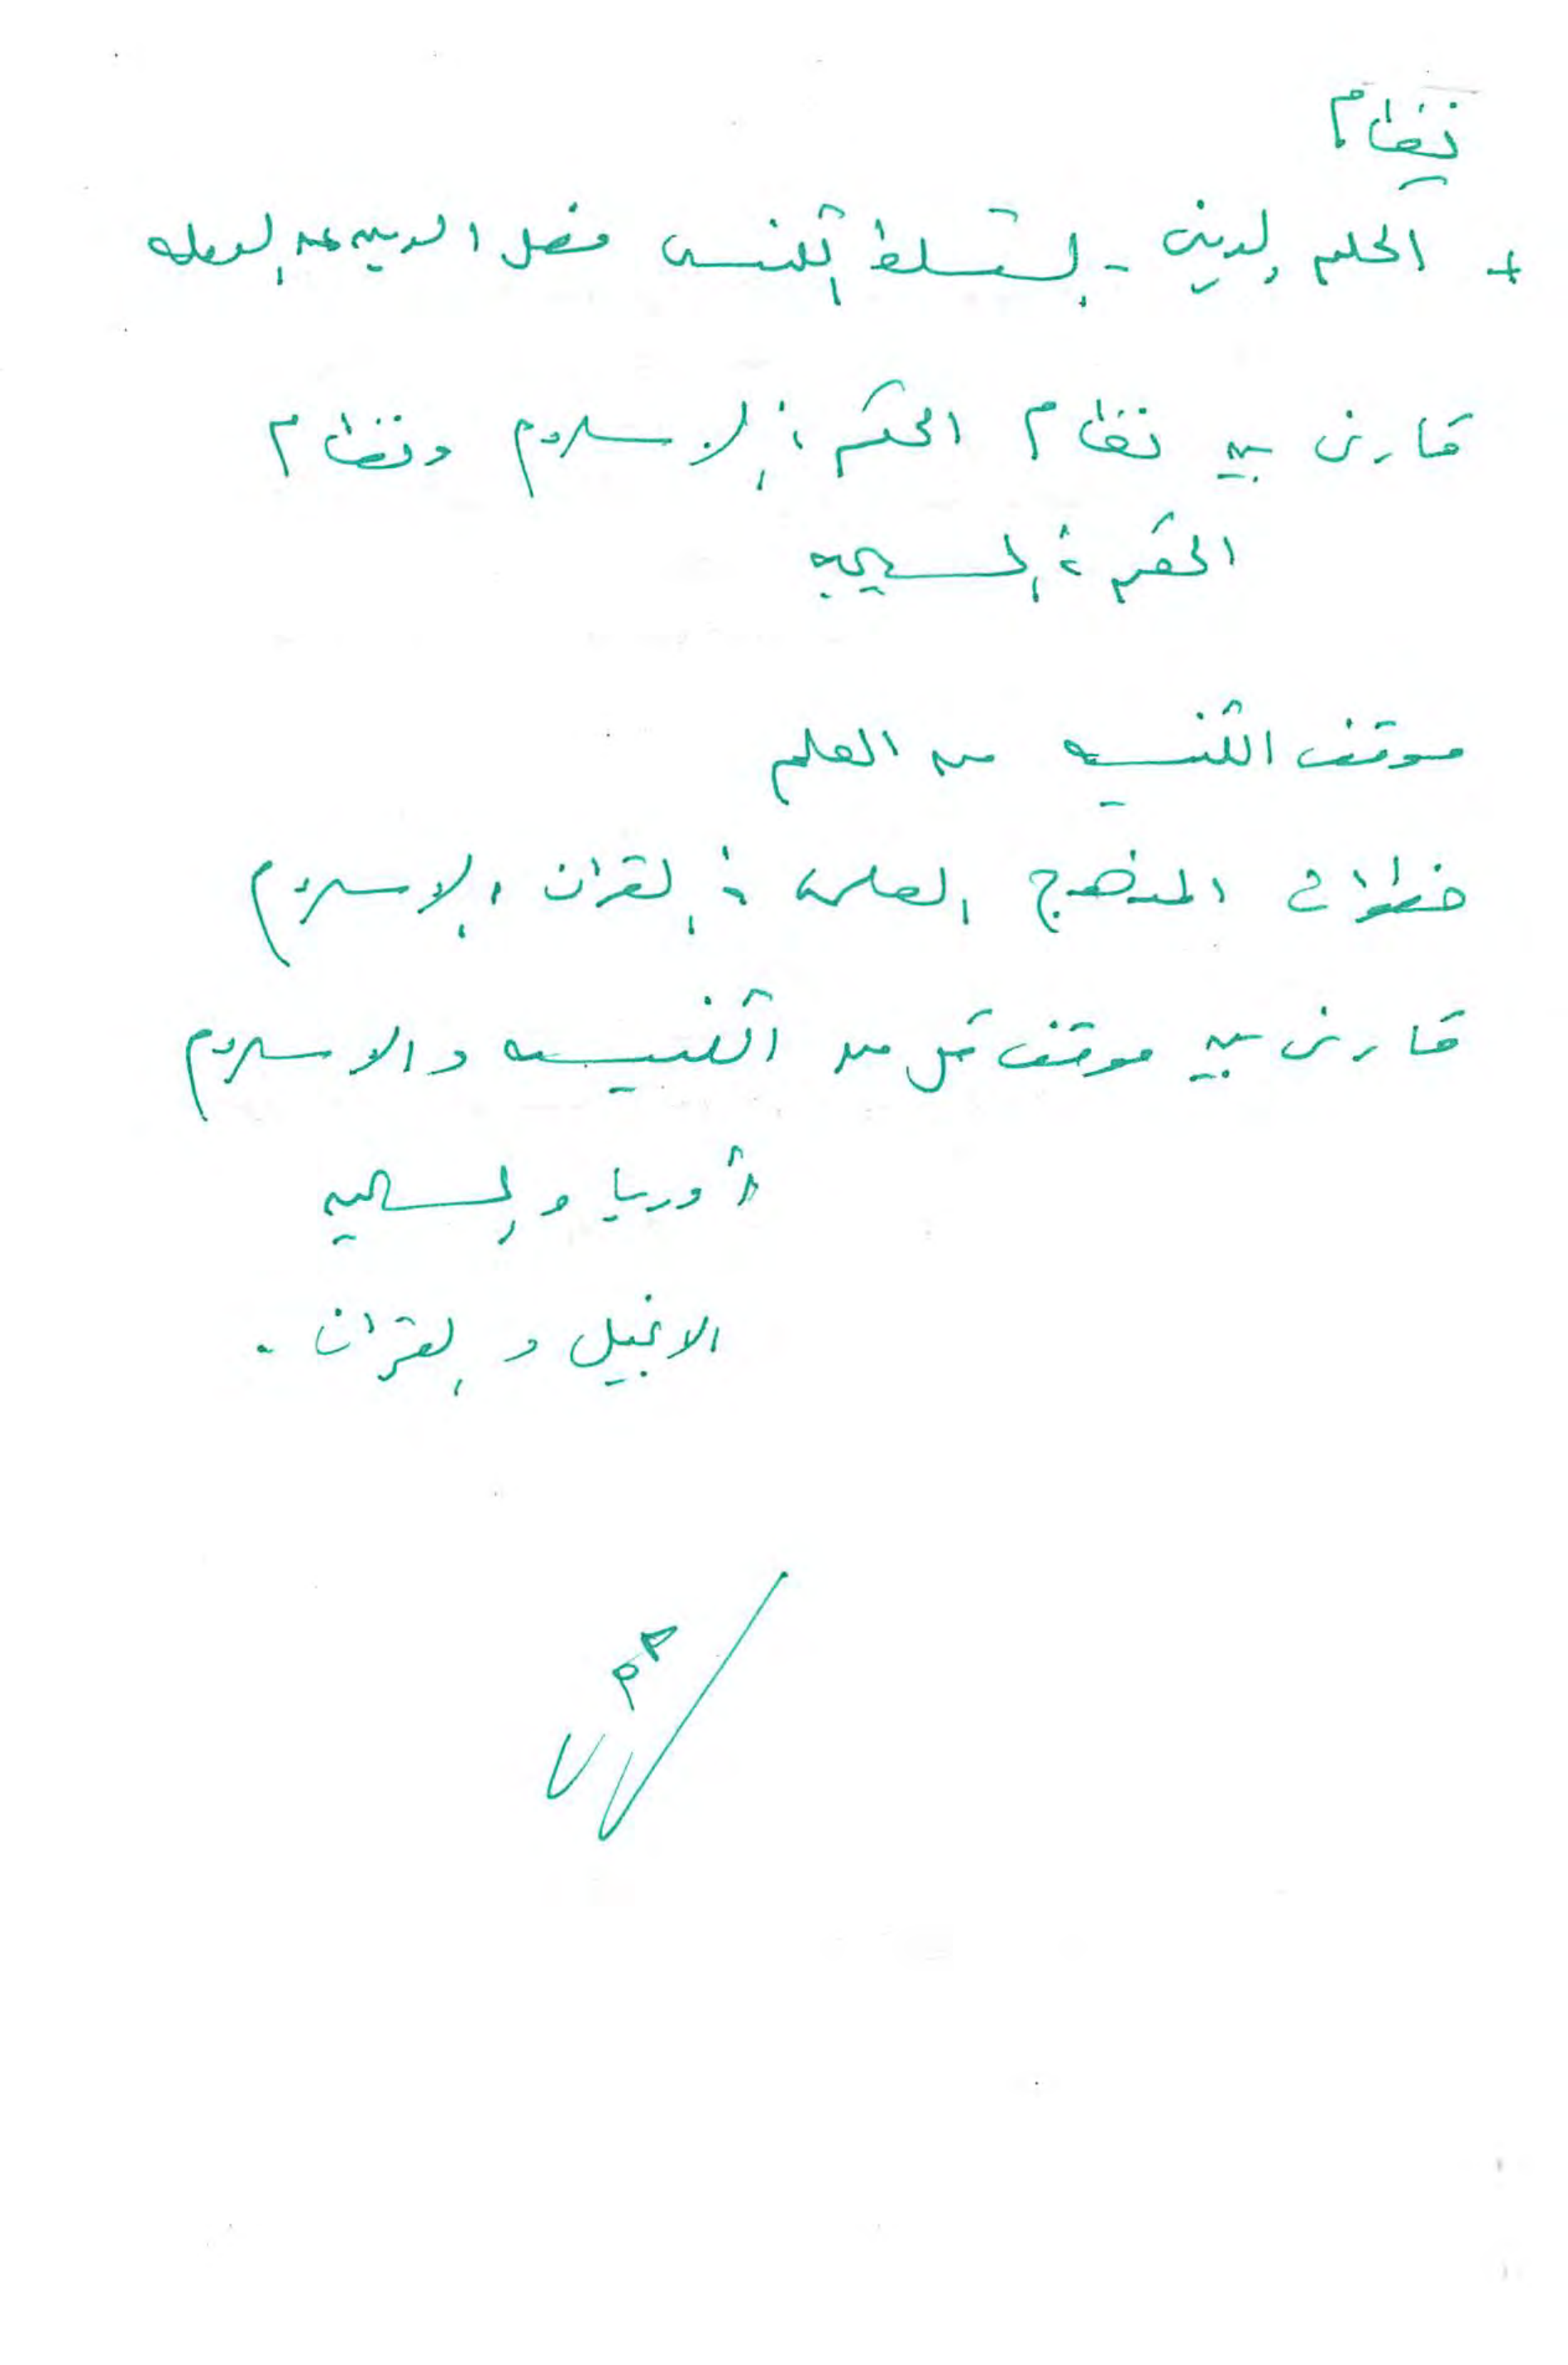 نظام
+ الحكم الديني - التسلط الكنسي فصل الدين عن الدولة
قارن بين نظام الحكم في الإسلام ونظام
الحكم في المسيحية
موقف الكنيسة من العلم
خطوات المنهج العلمي في القران والاسلام
قارن بين موقف كل من الكنيسة والاسلام
أوربا والمسيحية
الانجيل والقران .